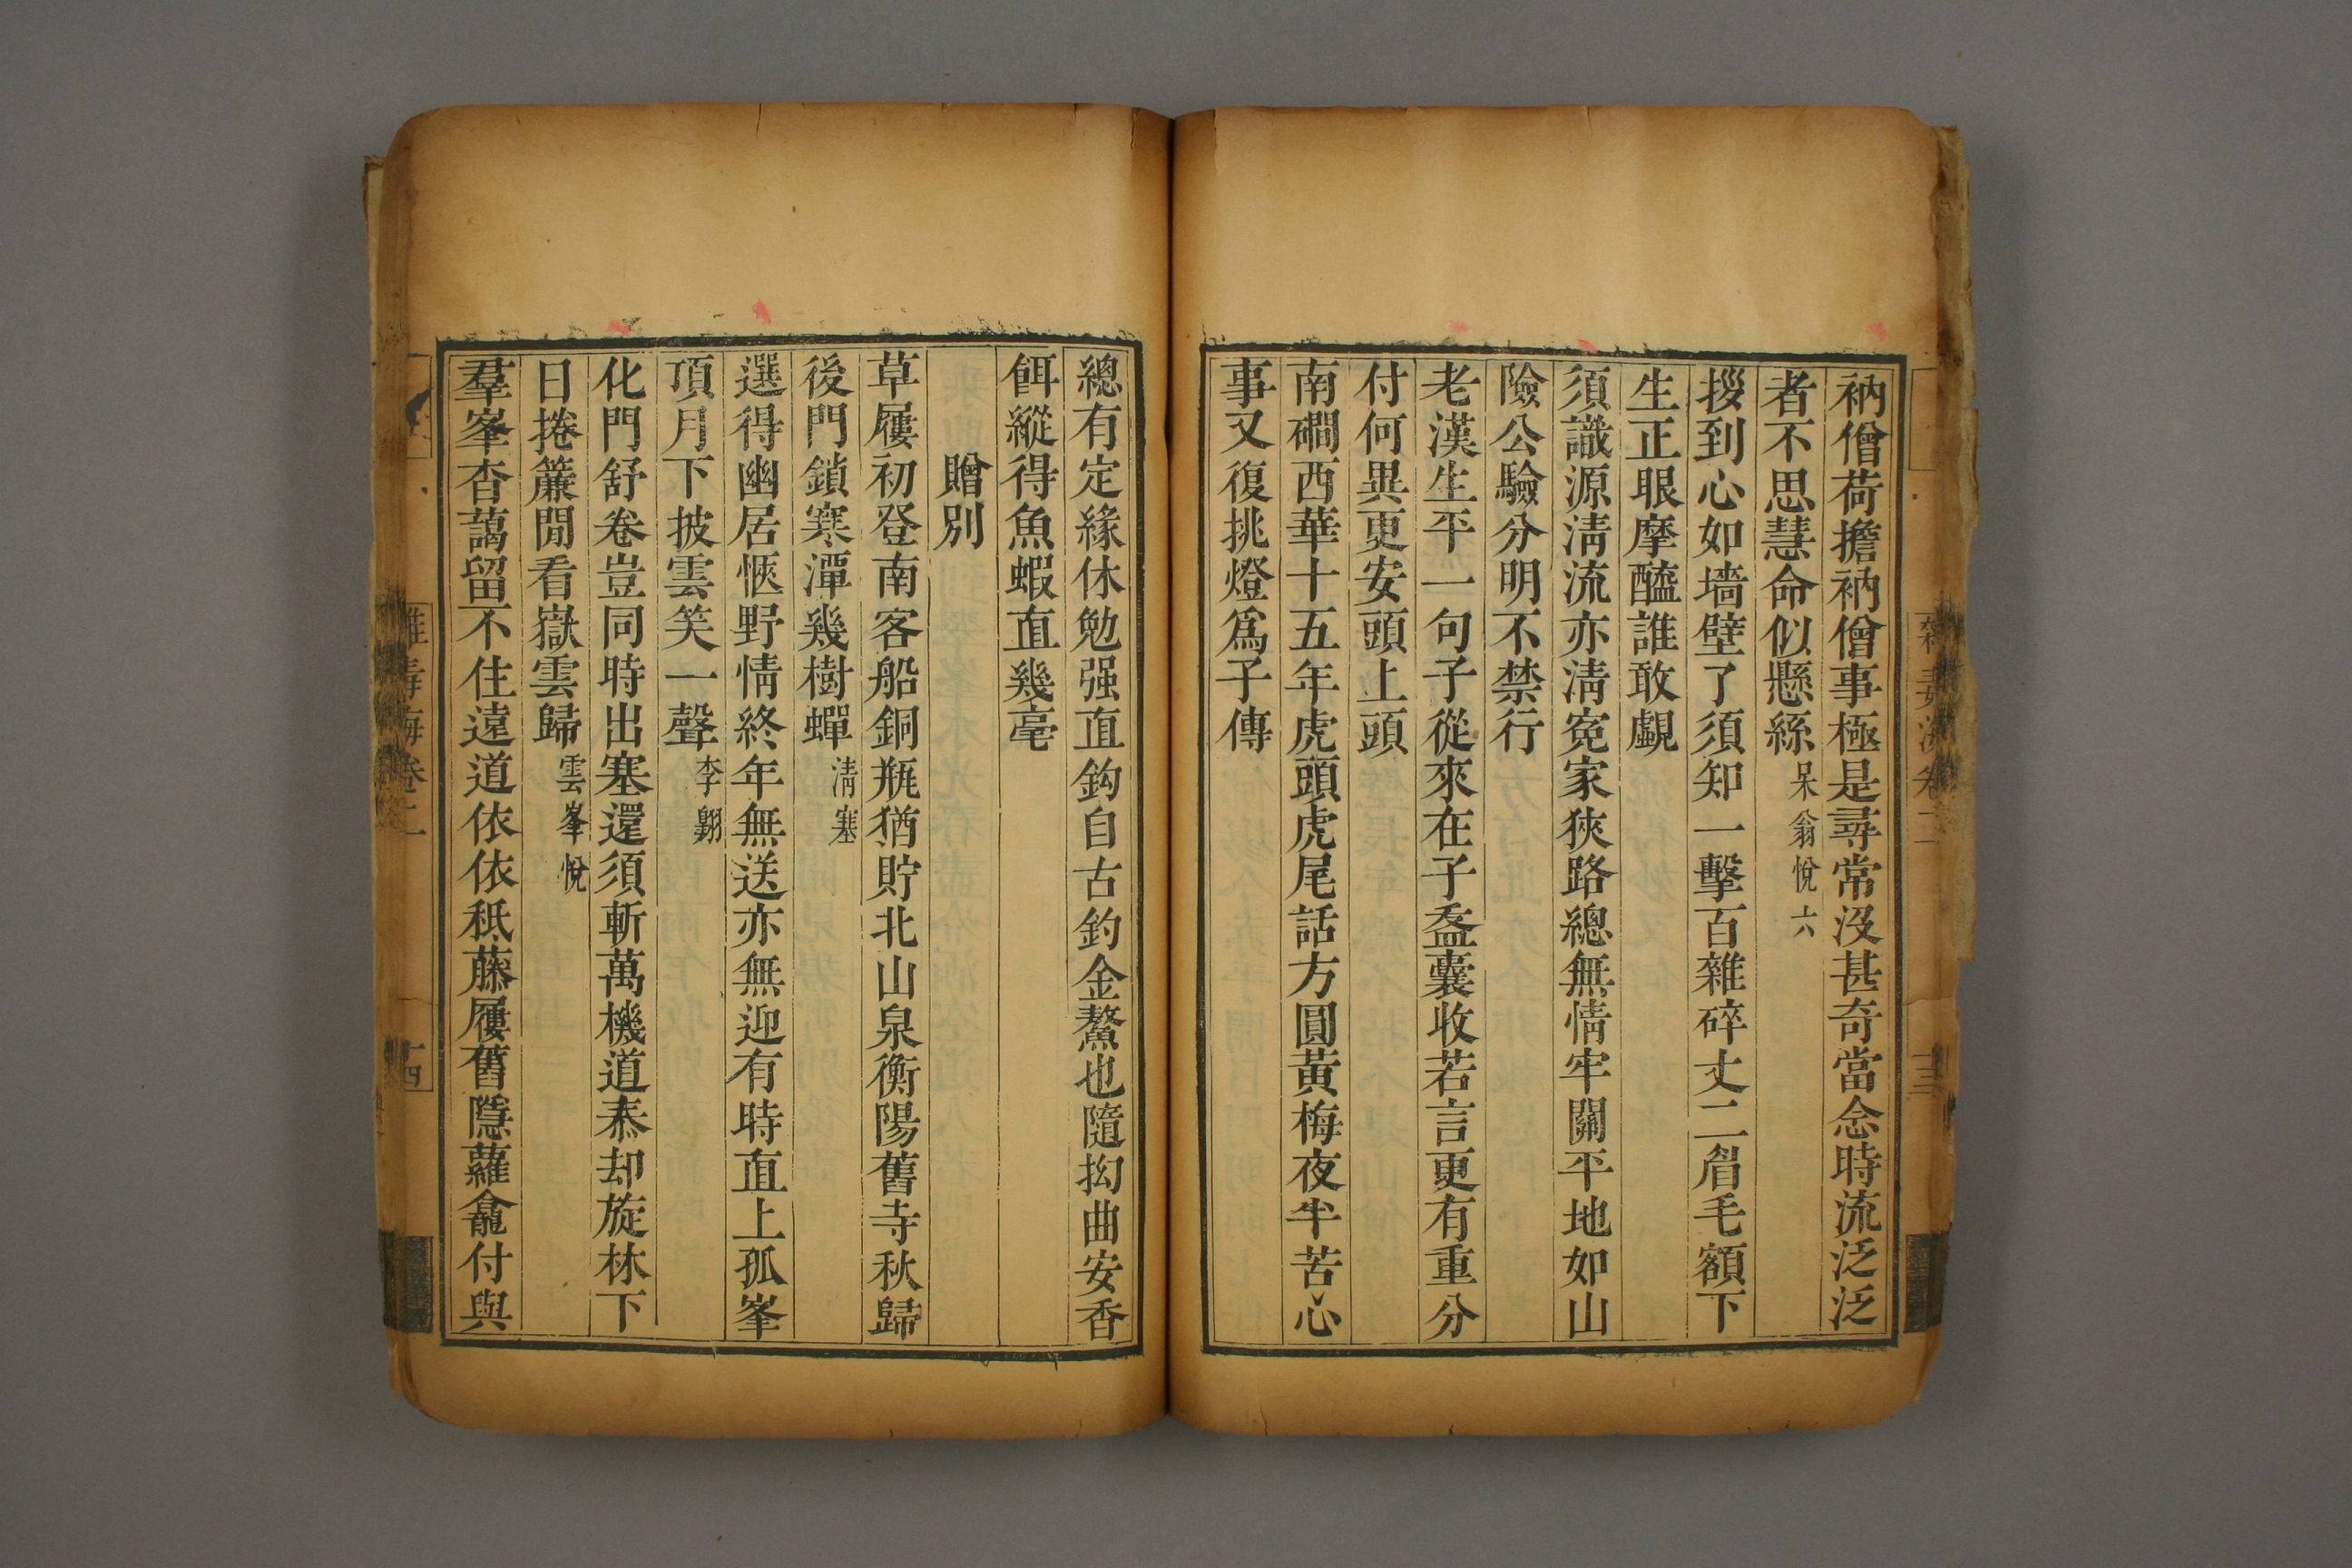 衲僧荷擔衲僧事極是尋常沒甚奇當念時流泛泛
者不思慧命似懸絲呆翁悅六
拶到心如墻壁了須知一擊百雜碎丈二眉毛額下
生正眼摩醯誰敢覷
須識源淸流亦淸寃家狹路總無情牢關平地如山
險公驗分明不禁行
老漢生平一句子從來在子盋囊收若言更有重分
付何異更安頭上頭
南磵西華十五年虎頭虎尾話方圓黃梅夜半苦心
事又復挑燈爲子傳
總有定緣休勉强直鈎自古釣金鰲也隨抝曲安香
餌縱得魚蝦直幾毫
贈別
草屨初登南客船銅甁猶貯北山泉衡陽舊寺秋歸
後門鎖寒潭幾樹蟬淸塞
選得幽居愜野情終年無送亦無迎有時直上孤峯
頂月下披雲笑一聲李翺
化門舒卷豈同時出塞還須斬萬機道泰却旋林下
日捲簾閒看嶽雲歸雲峯悅
羣峯杳藹留不住遠道依依秖藤屨舊隱蘿龕付與
卷二
十四